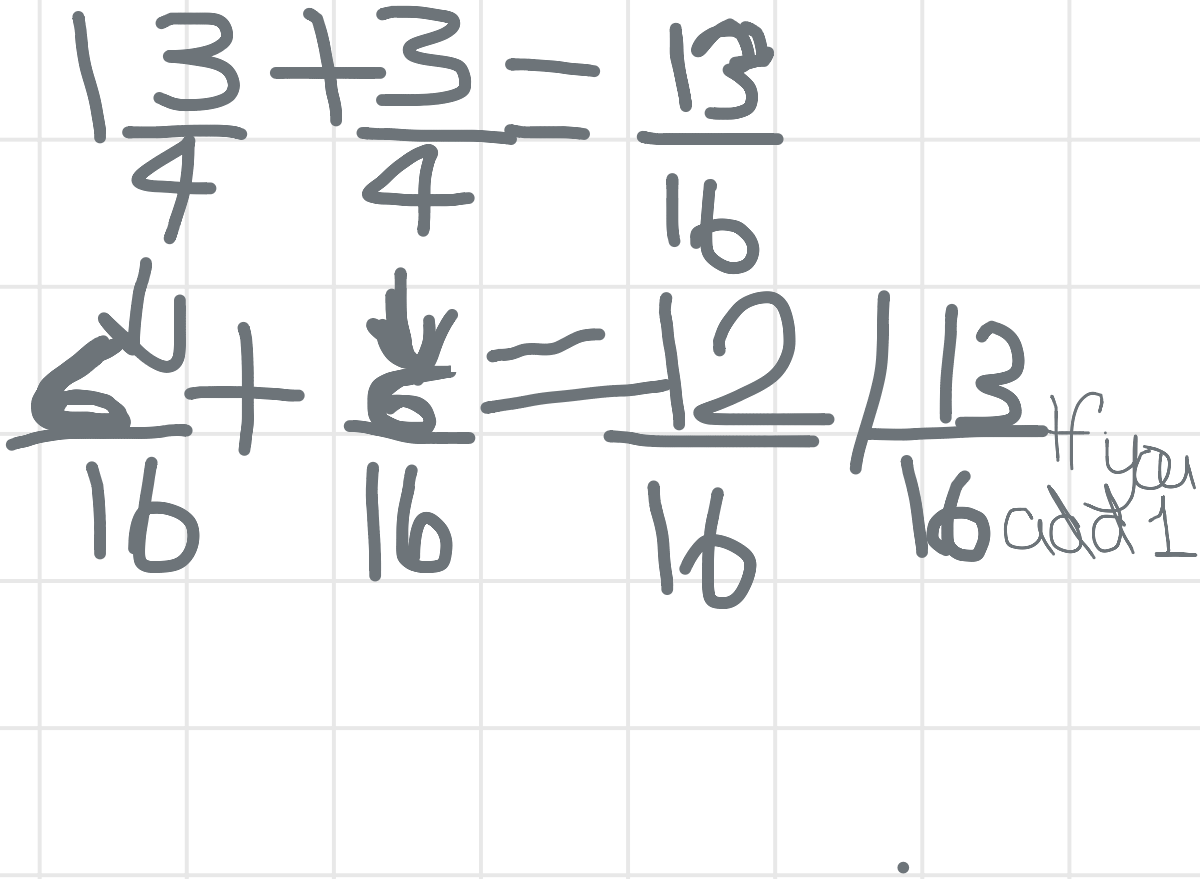 1 3/4 + 3/4 = 13/16
6/16 + 6/16 = 12/16 / 13/16 If you add 1